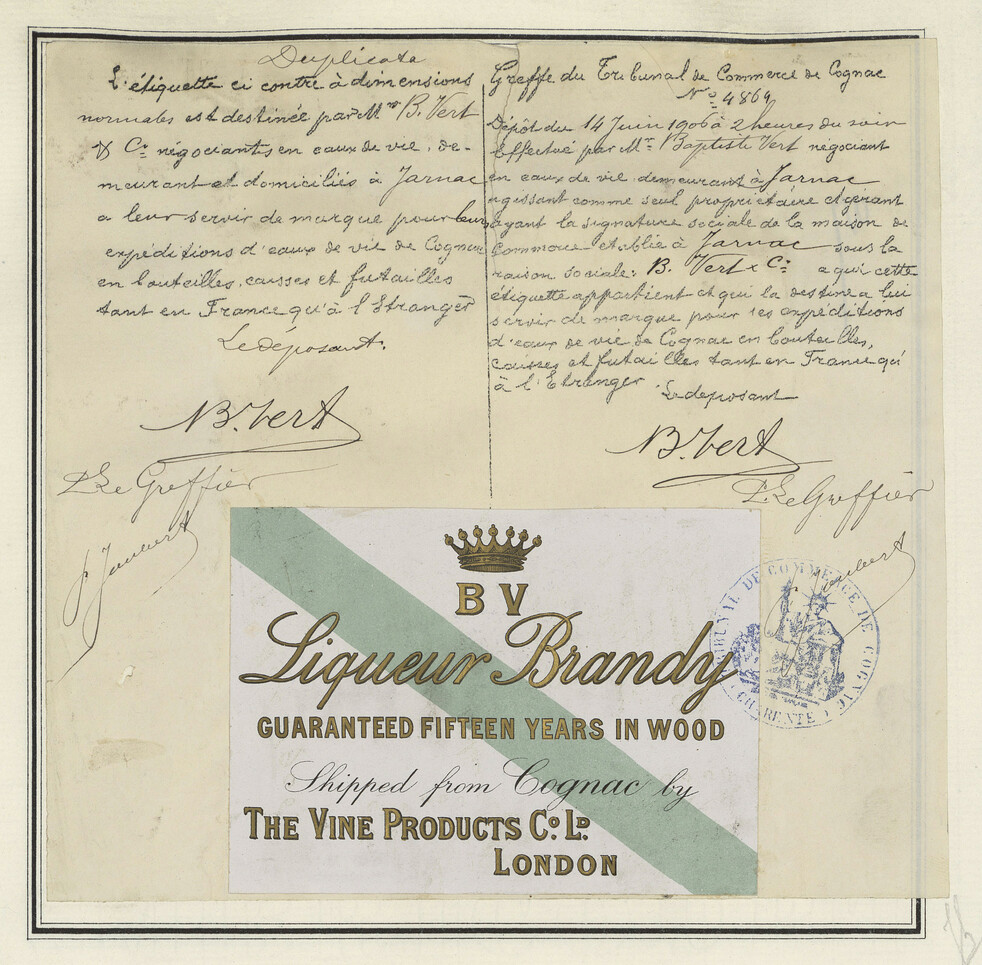 Duplicata
L'étiquette ci contre à dimensions
normales est destinée par Mr B. Vert
& Cie négociants en eaux de vie, de-
meurant et domiciliés à Jarnac
a leur servir de marque pour leurs
expéditions d'eaux de vie de Cognac
en bouteilles, caisses et futailles
tant en France qu'à l'Etranger
Le déposant.
B. Vert
Le Greffier
Greffe du Tribunal de Commerce de Cognac
No 4864
Dépôt du 14 Juin 1906 à 2 heures du soir
Effectué par Mr Baptiste Vert négociant
en eaux de vie demeurant à Jarnac
agissant comme seul propriétaire et gérant
ayant la signature sociale de la maison de
Commerce établie à Jarnac sous la
raison sociale: B. Vert & Cie a qui cette
étiquette appartient et qui la destine a lui
servir de marque pour ses expéditions
d'eaux de vie de Cognac en bouteilles,
caisses et futailles tant en France qu'
à l'Etranger
Le deposant
B. Vert
Le Greffier
B V
Liqueur Brandy
GUARANTEED FIFTEEN YEARS IN WOOD
Shipped from Cognac by
THE VINE PRODUCTS Co. LD.
LONDON
TRIBUNAL DE COMMERCE DE COGNAC
CHARENTE